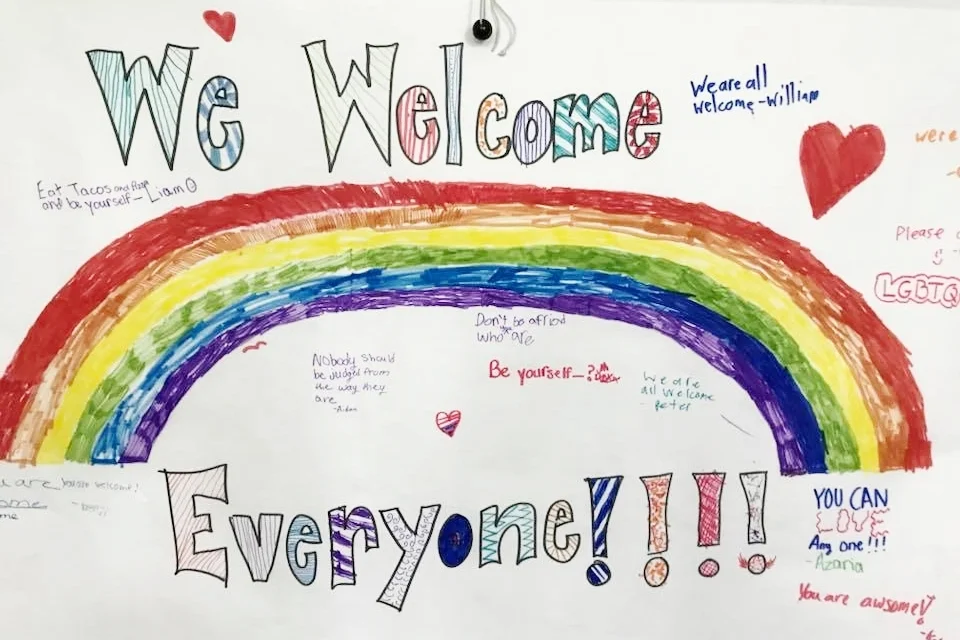 We Welcome
We are all
welcome - William
were
Eat Tacos and
and be yourself - Liam
Please
LGBTQ
Don't be afriod
who are
Nobody should
be Judged from
the way they
are
-Aidan
Be yourself -
We are
all welcome
- Peter
are
me
You are welcome!
Everyone!!!!
YOU CAN
LOVE
Any one!!!
-Azaria
You are awsome!